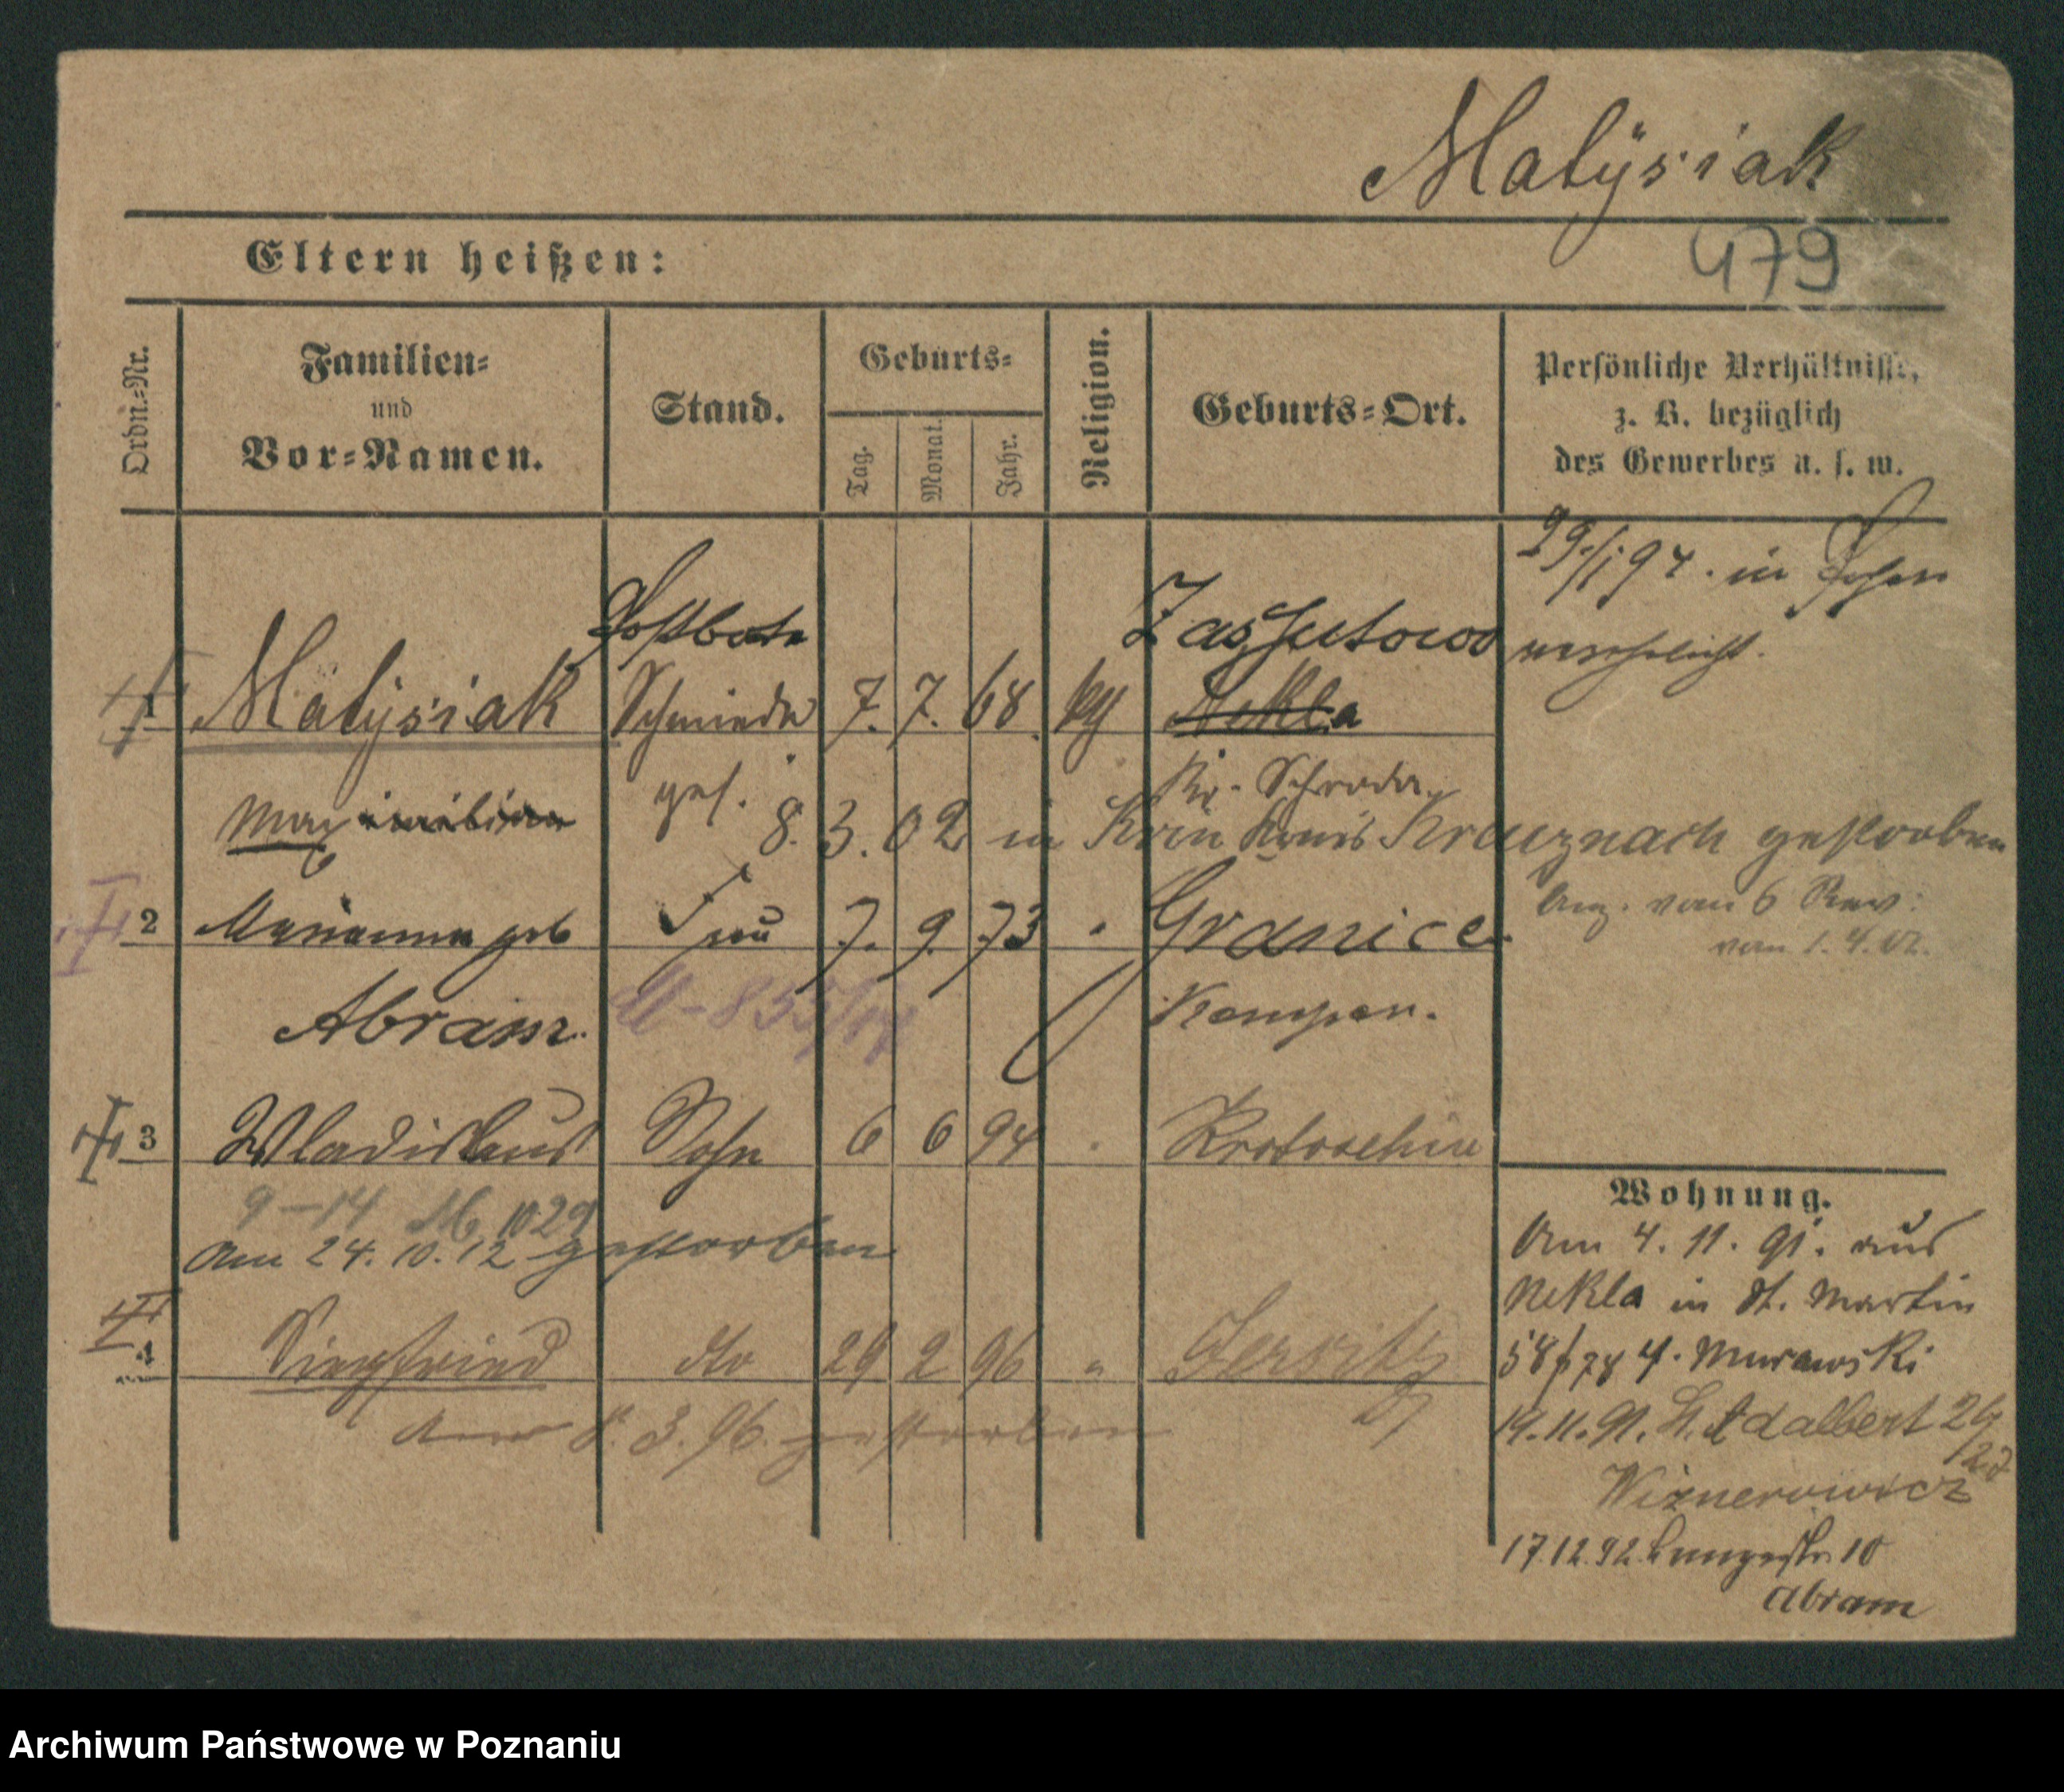 Matÿsiak
Eltern heißen:
479
Ordn.-Nr.
Familien-
und
Vor-Namen.
Stand.
Geburts-
Tag.
Monat.
Jahr.
Religion.
Geburts-Ort.
Persönliche Verhältnisse,
z. B. bezüglich
des Gewerbes u. s. w.
29/1 94. in Posen
verehelicht.
Postbote
Zasutowo
1 Matÿsiak Schmiede 7. 7. 68. kg Nekla
Kr. Schroda
Maximilian gest. 8. 3. 02 in Kreuznach gestorben
Anz. vom 6 Rev:
vom 1. 4. 02.
2 Marianna geb Frau 7. 9. 73 " Granice
Abram. Kempen.
3 Wladislaus Sohn 6 6 94 " Krotoschin
9-14 1029
am 24. 10. 12 gestorben
4 Siegfried dto 29 2 96 " Jersitz
am 8. 3. 96. gestorben
Wohnung.
Am 4. 11. 91. aus
Nekla in St. Martin
58 Murawski
19.11.91. St. Adalbert 26/27
Wiznerowicz
17.12.92. Langestr. 10
Abram
Archiwum Państwowe w Poznaniu